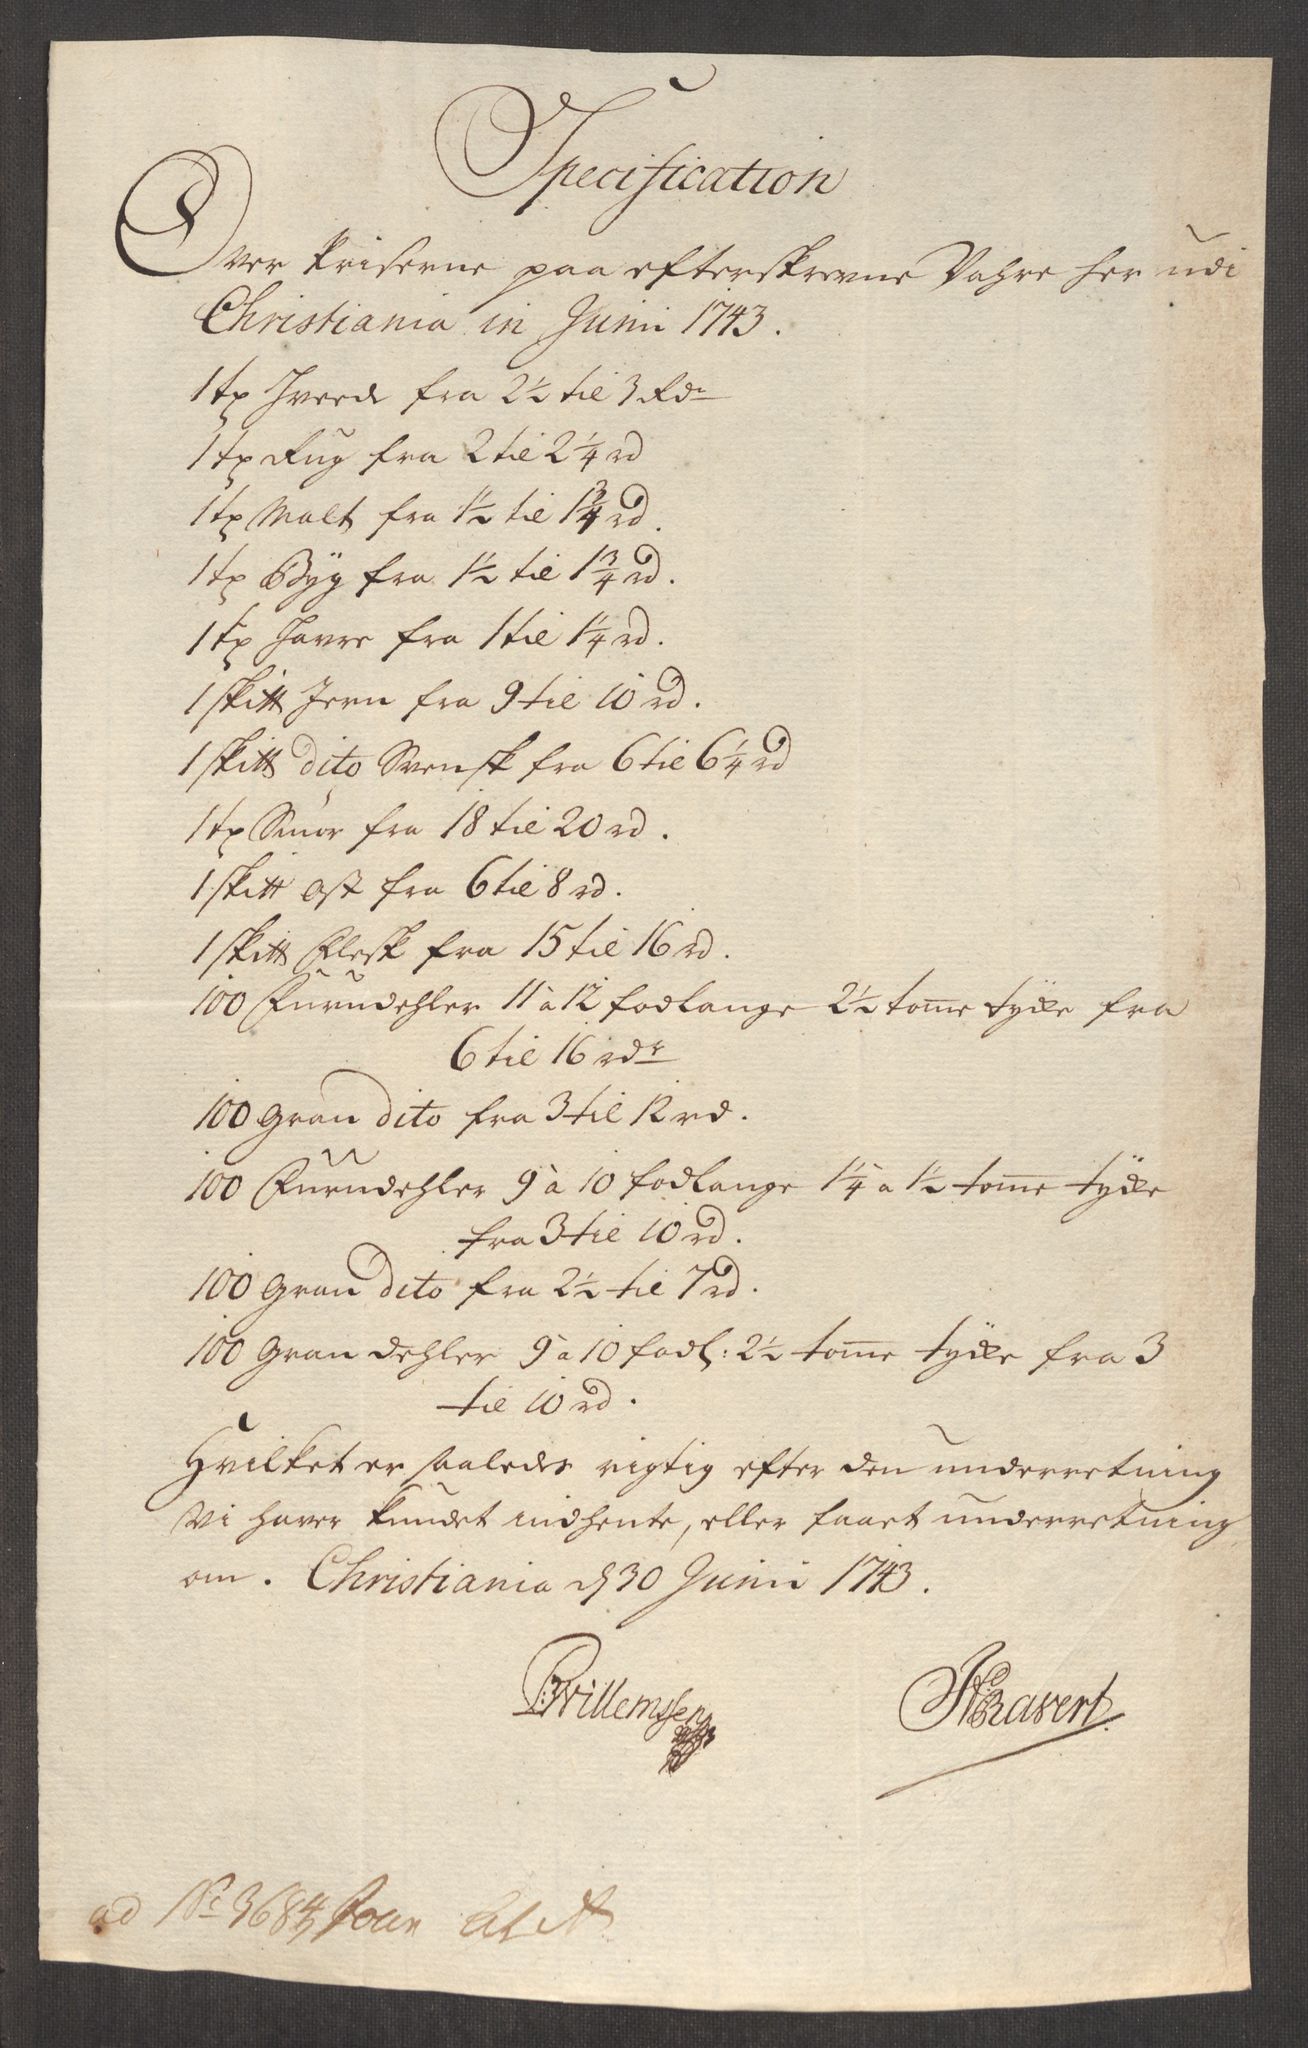 Specification
Over Priserne paa efterskrevne Vahre her udi
Christiania in Junii 1743.
1 tø Hvede fra 2½ til 3 Rdr
1 tø Rug fra 2 til 2¼ rd
1 tø Malt fra 1½ til 1¾ rd.
1 tø Byg fra 1½ til 1¾ rd.
1 tø Havre fra 1 til 1¼ rd.
1 skt Jern fra 9 til 10 rd.
1 skt dito Svensk fra 6 til 6¼ rd
1 tø Smør fra 18 til 20 rd.
1 skt Ost fra 6 til 8 rd.
1 skt Flesk fra 15 til 16 rd.
100 Furudehler 11 à 12 fodlange 2½ tomme tycke fra
6 til 16 rdr
100 Gran dito fra 3 til 12 rd.
100 Furudehler 9 à 10 fodlange 1¼ a 1½ tomme tycke
fra 3 til 10 rd.
100 Gran dito fra 2½ til 7 rd.
100 Gran dehler 9 à 10 fodl: 2½ tomme tycke fra 3
til 10 rd.
Hvilket er saaledes rigtig efter den underretning
vi haver kundet indhente, eller faaet underretning
om. Christiania d 30 Junii 1743.
Willemssen Ravert
ad No 3684